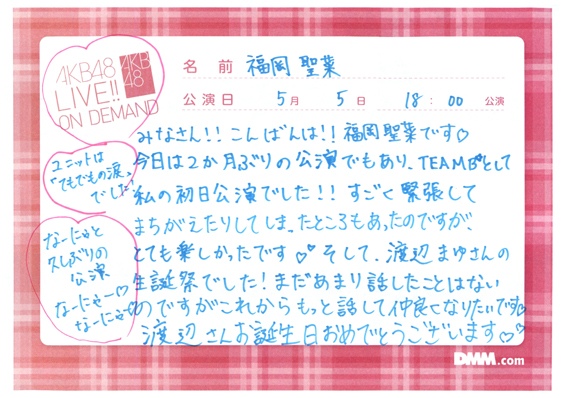 AKB48
LIVE!!
ON DEMAND
AKB
48
名前 福岡 聖菜
公演日 5月 5日 18:00 公演
みなさん!!こんばんは!!福岡聖菜です♡
今日は2か月ぶりの公演でもあり、TEAMBとして
私の初日公演でした!!すごく緊張して
まちがえたりしてしまったところもあったのですが、
とても楽しかったです♡♡そして、渡辺まゆさんの
生誕祭でした!まだあまり話したことはない
のですがこれからもっと話して仲良くなりたいです♡
渡辺さんお誕生日おめでとうございます♡♡
ユニットは
"てもでもの涙"
でした!
なーにゃと
久しぶりの
公演
なーにゃー♡
なーにゃー♡
DMM.com